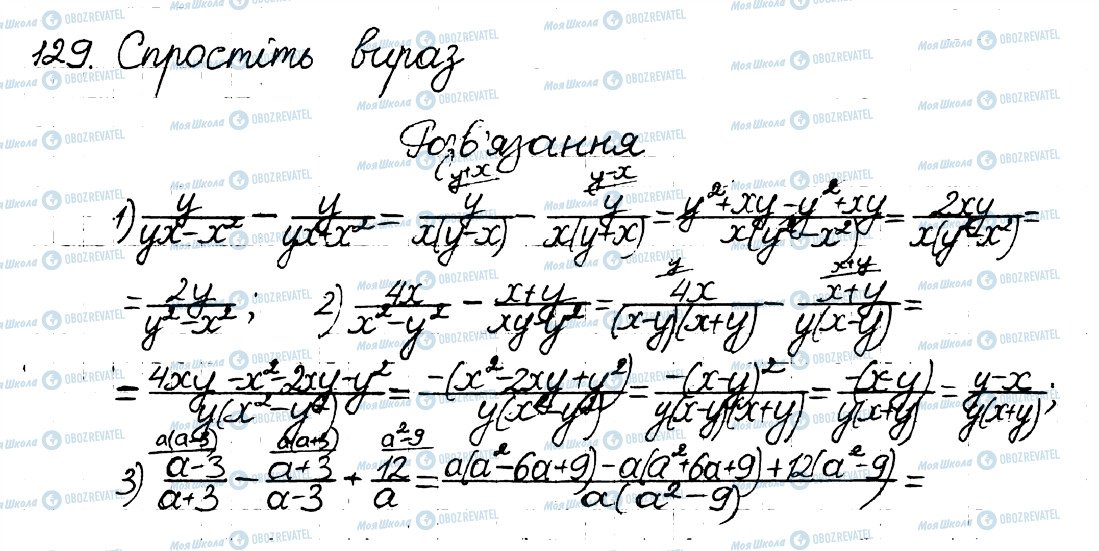 129. Спростіть вираз
Розв'язання
1) \frac{y}{yx-x^2} - \frac{y}{yx+x^2} = \frac{y}{x(y-x)}^{y+x} - \frac{y}{x(y+x)}^{y-x} = \frac{y^2+xy-y^2+xy}{x(y^2-x^2)} = \frac{2xy}{x(y^2-x^2)} =
= \frac{2y}{y^2-x^2}; 2) \frac{4x}{x^2-y^2} - \frac{x+y}{xy-y^2} = \frac{4x}{(x-y)(x+y)}^{y} - \frac{x+y}{y(x-y)}^{x+y} =
= \frac{4xy-x^2-2xy-y^2}{y(x^2-y^2)} = \frac{-(x^2-2xy+y^2)}{y(x^2-y^2)} = \frac{-(x-y)^2}{y(x-y)(x+y)} = \frac{-(x-y)}{y(x+y)} = \frac{y-x}{y(x+y)};
3) \frac{a-3}{a+3}^{a(a-3)} - \frac{a+3}{a-3}^{a(a+3)} + \frac{12}{a}^{a^2-9} = \frac{a(a^2-6a+9)-a(a^2+6a+9)+12(a^2-9)}{a(a^2-9)} =
МояШкола OBOZREVATEL